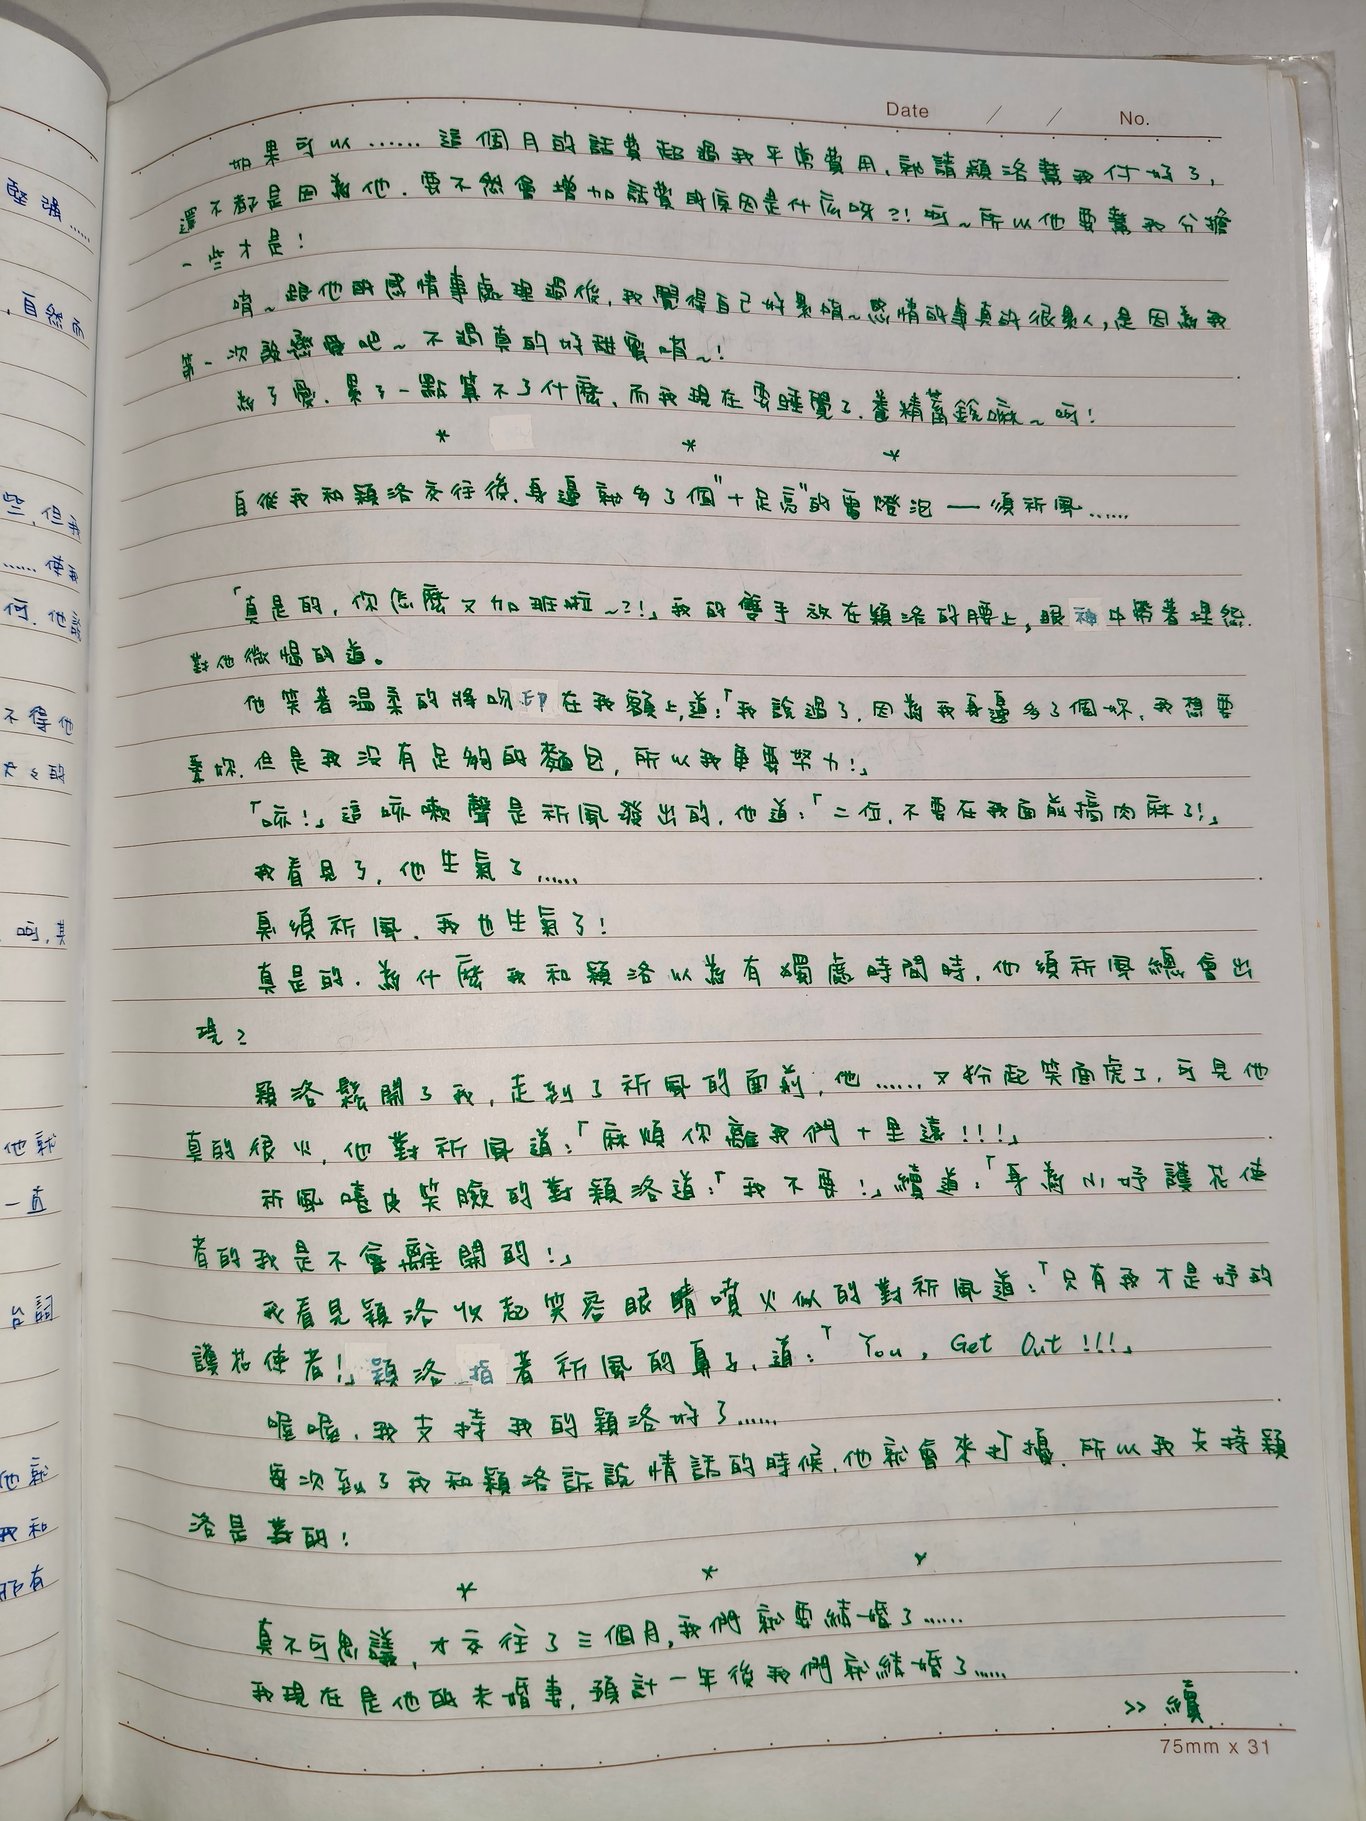 Date / / No.
如果可以……這個月的話費超過我平常費用,就請穎洛幫我付好了,
還不都是因為他.要不然會增加話費的原因是什麼呀?!呵~所以他要幫我分擔
一些才是!
唷~跟他的感情事處理過後,我覺得自己好累唷~感情的事真的很累人,是因為我
第一次談戀愛吧~不過真的好甜蜜唷~!
為了愛.累了一點算不了什麼.而我現在要睡覺了.養精蓄銳嘛~呵!
* * *
自從我和穎洛交往後.身邊就多了個"十足亮"的電燈泡——須祈風……
「真是的,你怎麼又加班啦~?!」我的雙手放在穎洛的腰上,眼神中帶著埋怨.
對他微慍的道。
他笑著溫柔的將吻印在我額上,道:「我說過了.因為我身邊多了個妳.我想要
養妳.但是我沒有足夠的麵包,所以我更要努力!」
「咳!」這咳嗽聲是祈風發出的.他道:「二位.不要在我面前搞肉麻了!」
我看見了,他生氣了……
臭須祈風.我也生氣了!
真是的.為什麼我和穎洛以為有獨處時間時.他須祈風總會出
現?
穎洛鬆開了我,走到了祈風的面前,他……又扮起笑面虎了.可見他
真的很火.他對祈風道:「麻煩你離我們十里遠!!!」
祈風嘻皮笑臉的對穎洛道:「我不要!」續道:「身為小妤護花使
者的我是不會離開的!」
我看見穎洛收起笑容眼睛噴火似的對祈風道:「只有我才是妤的
護花使者!」穎洛指著祈風的鼻子.道:「You, Get Out!!!」
喔喔.我支持我的穎洛好了……
每次到了我和穎洛訴說情話的時候.他就會來打擾.所以我支持穎
洛是對的!
* * *
真不可思議,才交往了三個月,我們就要結婚了……
我現在是他的未婚妻.預計一年後我們就結婚了……
>> 續
75mm x 31